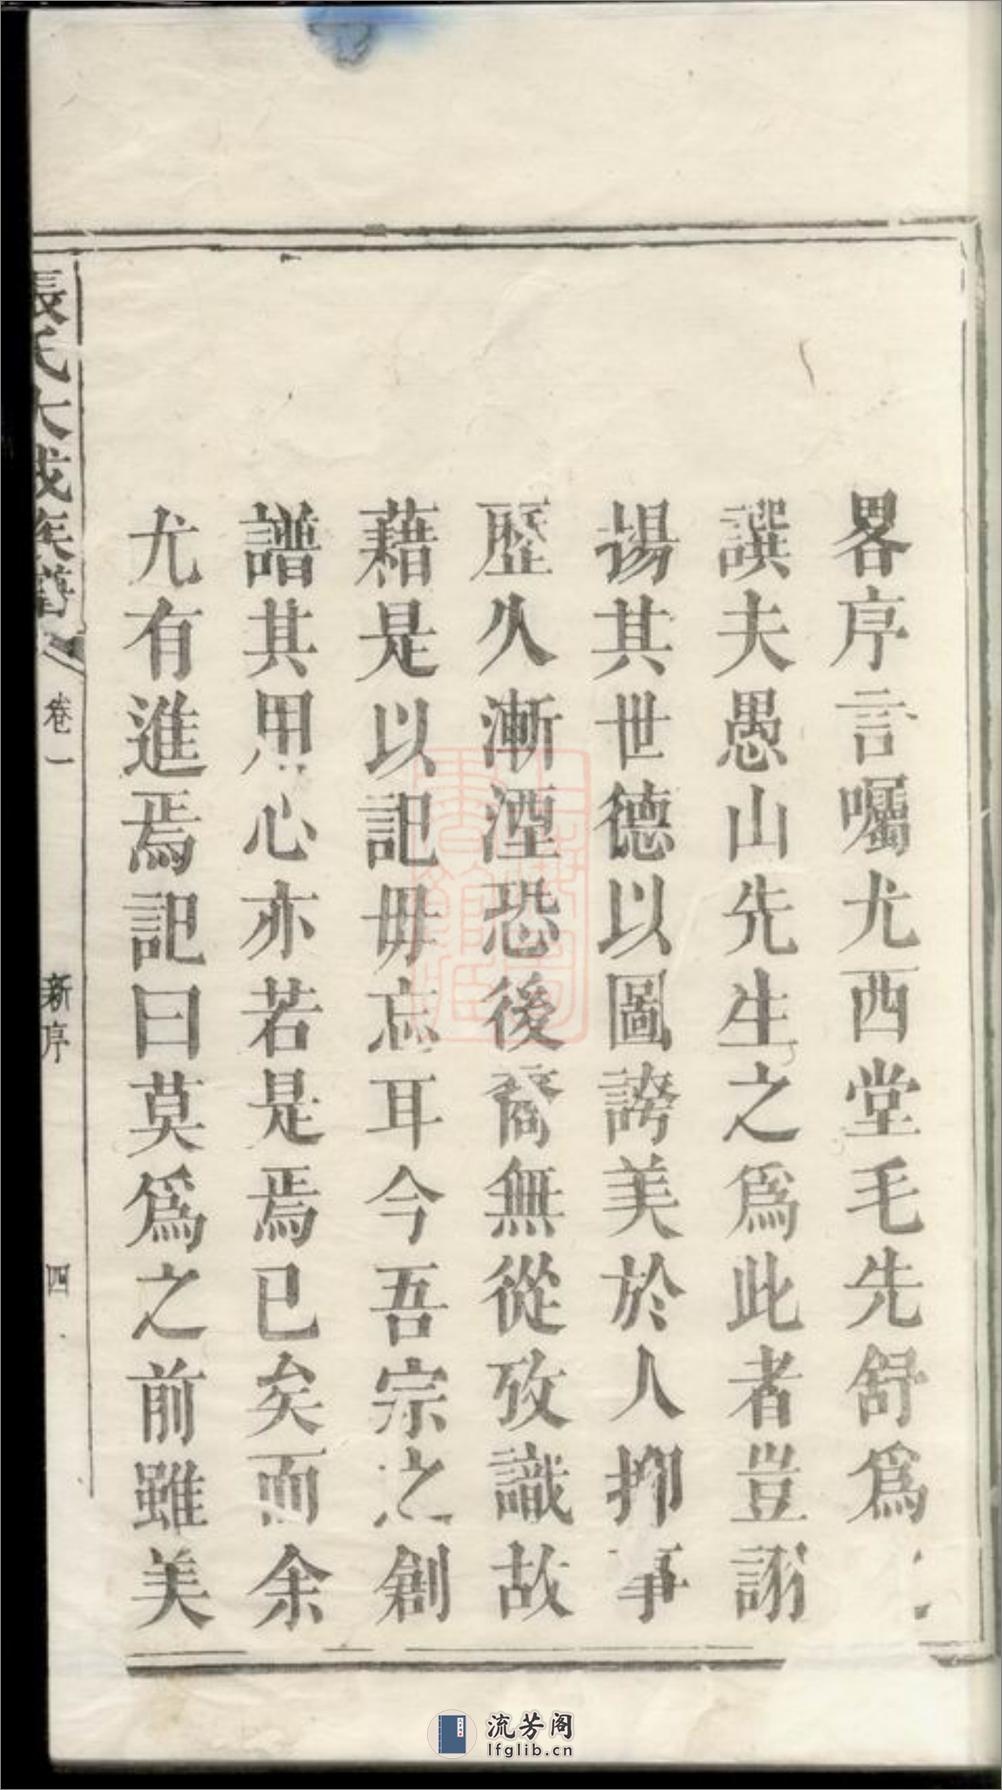 畧序言囑尤西堂毛先舒爲
譔夫愚山先生之爲此者豈詡
揚其世德以圖誇美於人抑事
歷久漸湮恐後裔無從攷識故
藉是以記毋忘耳今吾宗之創
譜其用心亦若是焉已矣而余
尤有進焉記曰莫爲之前雖美
張氏大成族譜
卷一
新序
四
流芳阁
lfglib.cn